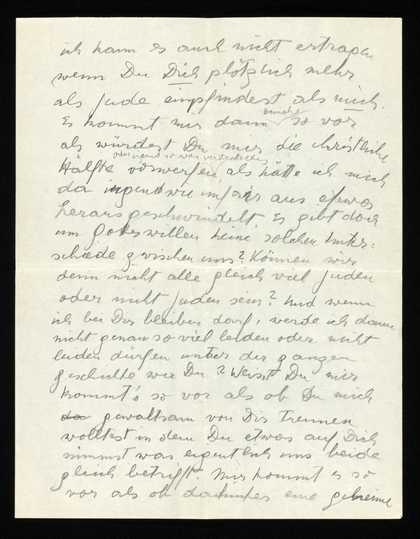 ich kann es auch nicht ertragen
wenn Du Dich plötzlich mehr
als Jude empfindest als mich.
Es kommt mir dann immer so vor
als würdest Du mir die christliche
Hälfte vorwerfen, als hätte ich mich
oder wenn so was
da irgendwie aus etwas
herausgeschwindelt. Es gibt doch
um Gotteswillen keine solchen Unter-
schiede zwischen uns? Können wir
denn nicht alle gleich viel Juden
oder nicht Juden sein? Und wenn
ich bei Dir bleiben darf, werde ich dann
nicht genau so viel leiden oder nicht
leiden dürfen unter der ganzen
Geschichte wie Du? Weisst Du mir
kommt's so vor als ob Du mich
da gewaltsam von Dir trennen
wolltest in dem Du etwas auf Dich
nimmst was eigentlich uns beide
gleich betrifft. Mir kommt es so
vor als ob dahinter eine geheime